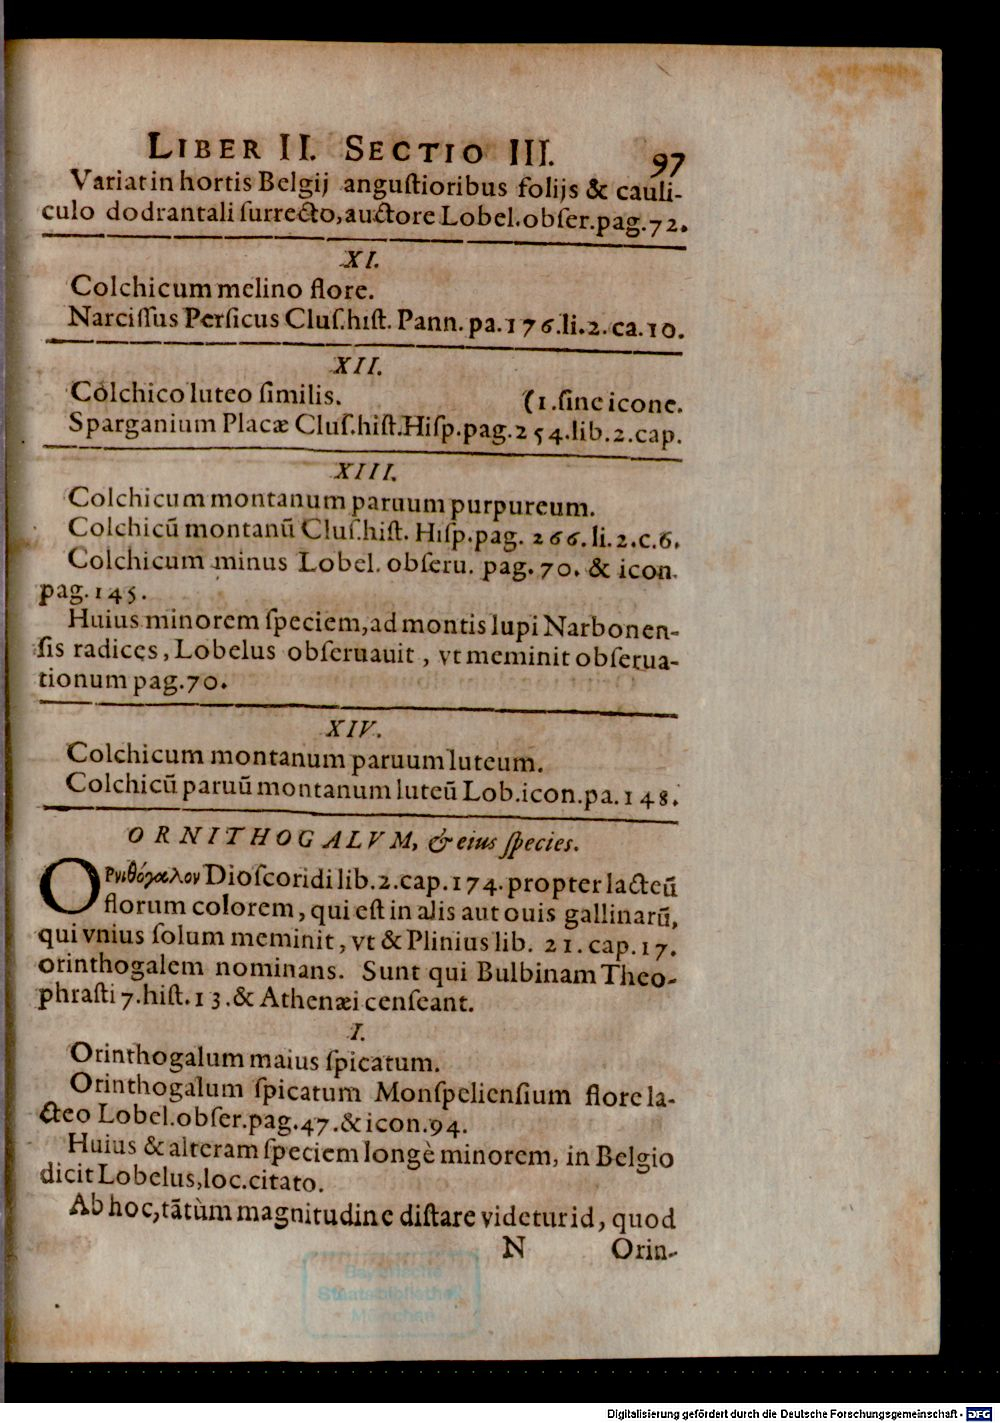 LIBER II. SECTIO III. 97
Variat in hortis Belgij angustioribus folijs & cauli-
culo dodrantali surrecto, auctore Lobel. obser. pag. 72.
XI.
Colchicum melino flore.
Narcissus Persicus Clus. hist. Pann. pa. 176. li. 2. ca. 10.
XII.
Colchico luteo similis. (1. sine icone.
Sparganium Placæ Clus. hist. Hisp. pag. 254. lib. 2. cap.
XIII.
Colchicum montanum paruum purpureum.
Colchicū montanū Clus. hist. Hisp. pag. 266. li. 2. c. 6.
Colchicum minus Lobel. obseru. pag. 70. & icon.
pag. 145.
Huius minorem speciem, ad montis lupi Narbonen-
sis radices, Lobelus obseruauit, vt meminit obserua-
tionum pag. 70.
XIV.
Colchicum montanum paruum luteum.
Colchicū paruū montanum luteū Lob. icon. pa. 148.
ORNITHOGALVM, & eius species.
Ορνιθόγαλον Dioscoridi lib. 2. cap. 174. propter lacteū
florum colorem, qui est in alis aut ouis gallinarū,
qui vnius solum meminit, vt & Plinius lib. 21. cap. 17.
orinthogalem nominans. Sunt qui Bulbinam Theo-
phrasti 7. hist. 13. & Athenæi censeant.
I.
Orinthogalum maius spicatum.
Orinthogalum spicatum Monspeliensium flore la-
cteo Lobel. obser. pag. 47. & icon. 94.
Huius & alteram speciem longè minorem, in Belgio
dicit Lobelus, loc. citato.
Ab hoc, tātùm magnitudine distare videtur id, quod
N Orin-
Bayerische
Staatsbibliothek
München
Digitalisierung gefördert durch die Deutsche Forschungsgemeinschaft - DFG